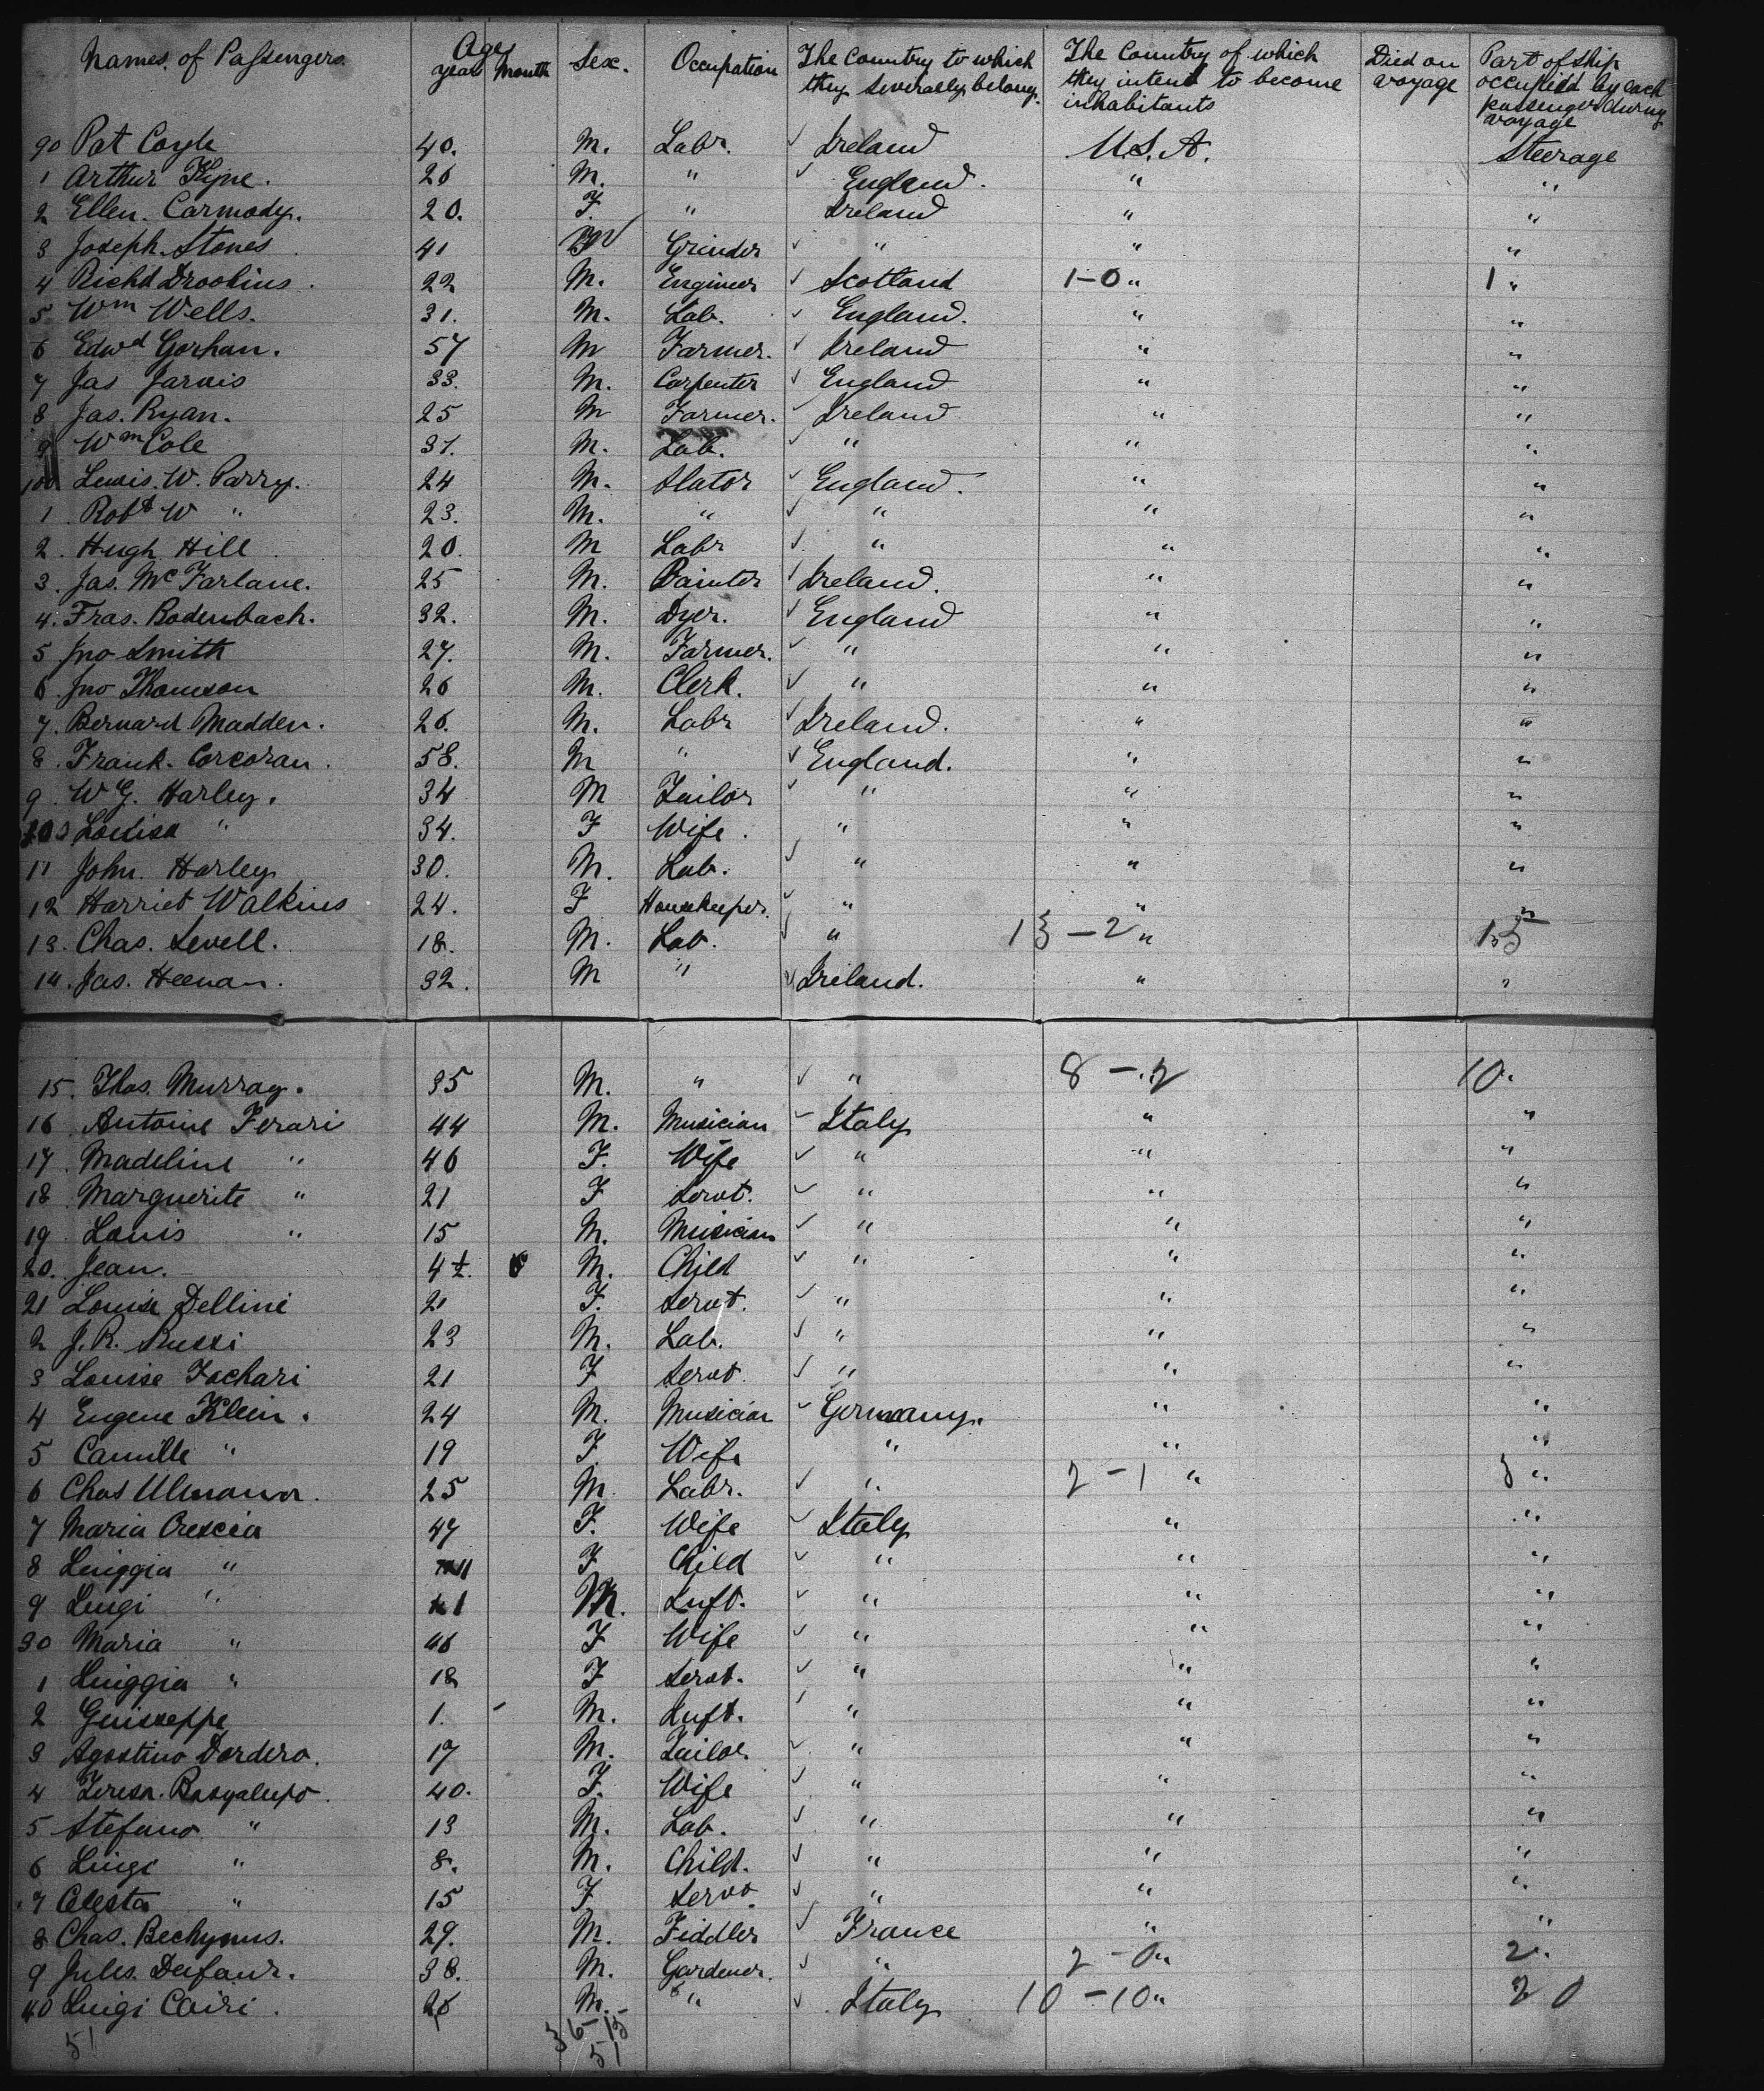 Names of Passengers Age years Month Sex. Occupation The Country to which they severally belong. The Country of which they intend to become inhabitants Died on voyage Part of ship occupied by each passenger during voyage
90 Pat Coyle 40. M. Labr. ✓ Ireland U.S.A. Steerage
1 Arthur Kyne. 26 M. " ✓ England. " "
2 Ellen. Carmody. 20. F. " Ireland " "
3 Joseph Stones 41 M Grinder ✓ " " "
4 Richd Droobins. 22 M. Engineer ✓ Scotland 1-0 " 1 "
5 Wm Wells. 31. M. Lab. ✓ England. " "
6 Edwd Gorhan. 57 M Farmer. ✓ Ireland " "
7 Jas Jarvis 33. M. Carpenter ✓ England " "
8 Jas. Ryan. 25 M Farmer. ✓ Ireland " "
9 Wm Cole 31. M. Lab. ✓ " " "
100 Lewis. W. Parry. 24 M. Slator ✓ England. " "
1 Robt W " 23. M. " ✓ " " "
2. Hugh Hill 20. M Labr ✓ " " "
3. Jas. McFarlane. 25 M. Painter ✓ Ireland. " "
4. Fras. Bodenbach. 32. M. Dyer. ✓ England " "
5 Jno Smith 27. M. Farmer. ✓ " " "
6. Jno Thomson 26 M. Clerk. ✓ " " "
7. Bernard Madden. 26. M. Labr ✓ Ireland. " "
8. Frank. Corcoran. 58. M " ✓ England. " "
9. W G. Harley. 34 M Tailor ✓ " " "
10 Louisa " 34. F Wife. " " "
11 John. Harley 30. M. Lab. ✓ " " "
12 Harriet Walkins 24. F Housekeeper. ✓ " " "
13. Chas. Sevell. 18. M. Lab. ✓ " 13-2 " 15
14. Jas. Heenan. 32. M " ✓ Ireland. " "
15. Thos. Murray. 35 M. " ✓ " 8-2 10.
16 Antoine Ferari 44 M. Musician ✓ Italy " "
17. Madeline " 46 F. Wife ✓ " " "
18. Marguerite " 21 F Servt. ✓ " " "
19 Louis " 15 M. Musician ✓ " " "
20. Jean. 4½. M. Child ✓ " " "
21 Louise Dellini 21 F. Servt. ✓ " " "
2 J. R. Russi 23 M. Lab. ✓ " " "
3 Louise Fochari 21 F Servt. ✓ " " "
4 Eugene Klein. 24 M. Musician ✓ Germany. " "
5 Camille " 19 F. Wife " " "
6 Chas Ulmann. 25 M. Labr. ✓ " 2-1 " 3 "
7 Maria Crescia 47 F. Wife ✓ Italy " "
8 Luiggia " 11 F Child ✓ " " "
9 Luigi " 1 M. Luft. ✓ " " "
30 Maria " 46 F Wife ✓ " " "
1 Luiggia " 18 F Servt. ✓ " " "
2 Guiseppe 1. - M. Luft. ✓ " " "
3 Agostino Dordero. 17 M. Tailor. ✓ " " "
4 Teresa. 40. F. Wife ✓ " " "
5 Stefano " 13 M. Lab. ✓ " " "
6 Luigi " 8. M. Child. ✓ " " "
7 Celesta " 15 F Servt. ✓ " " "
8 Chas. Bechymus. 29. M. Fiddler ✓ France " "
9 Jules. Dufaur. 38. M. Gardener. ✓ " 2-0 " 2 "
40 Luigi Cairi. 26 M. " ✓ Italy 10-10 " 20
51 36-15
51